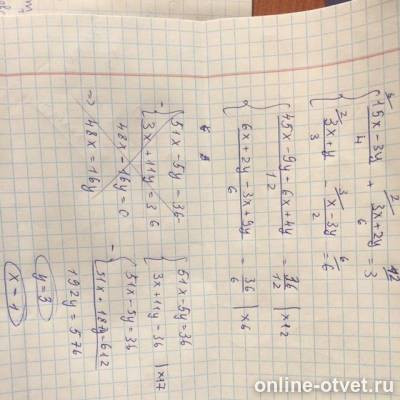 15x-3y/4 + 3x+2y/6 = 3
3x+y/3 - x-3y/2 = 6/6
45x-9y+6x+4y/12 = 36/12 | ×12
6x+2y-3x+9y/6 = 36/6 | ×6
51x-5y=36
3x+11y=36
48x-16y=0
=> 48x=16y
51x-5y=36
3x+11y=36 | ×17
51x-5y=36
51x+187y=612
192y=576
y=3
x=1
online-otvet.ru